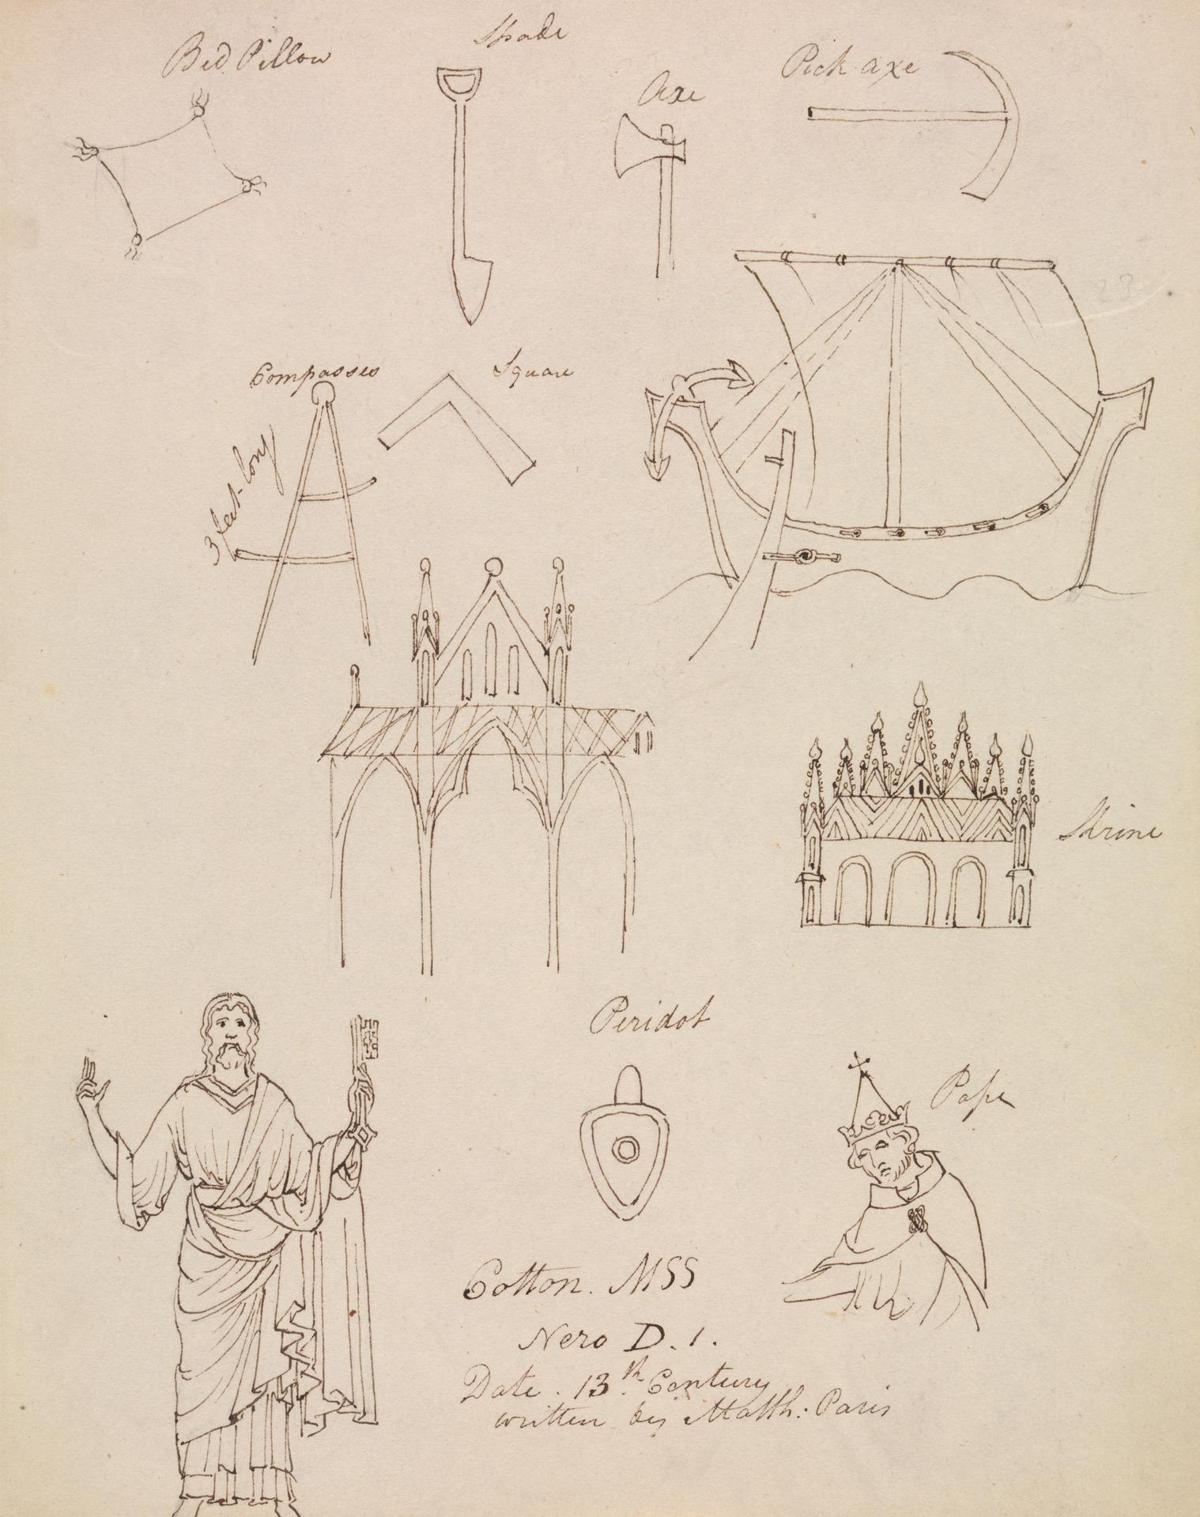 Spade
Bed Pillow
Pick axe
Axe
Compasses
Square
3 feet long
Shrine
Peridot
Pope
Cotton. MSS
Nero D. 1.
Date. 13th. Century
written by Matth: Paris